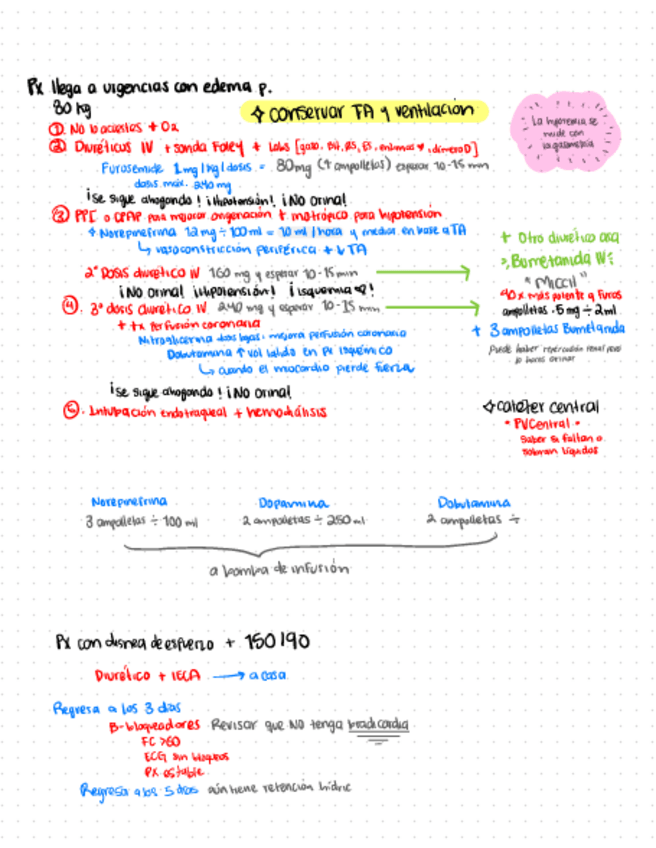 Px llega a urgencias con edema p.
80 kg
✧ conservar TA y ventilación
La hipoxemia se mide con la gasometría
① No lo acuestes + O2
② Diuréticos IV + sonda Foley + Labs [gaso, BH, QS, ES, enzimas ♥, dímero D]
Furosemide 1 mg/kg/dosis = 80mg (4 ampolletas) esperar 10-15 min
dosis máx. 240 mg
¡se sigue ahogando! ¡Hipotensión! ¡NO Orina!
③ PPI o CPAP para mejorar oxigenación + inotrópico para hipotensión
Norepinefrina 12 mg ÷ 100 ml = 10 ml/hora y medir en base a TA
↳ vasoconstricción periférica + ↓ TA
2° Dosis diurético IV 160 mg y esperar 10-15 min
¡NO Orina! ¡Hipotensión! ¡isquemia ♥!
④. 3° dosis diurético IV 240 mg y esperar 10-15 min
+ tx perfusión coronaria
Nitroglicerina dosis bajas: mejora perfusión coronaria
Dobutamina ↑ vol latido en px isquémico
↳ cuando el miocardio pierde fuerza
¡se sigue ahogando! ¡NO Orina!
⑤. Intubación endotraqueal + hemodiálisis
+ Otro diurético asa
Bumetanida IV
"Miccil"
40x más potente q Furos
ampolletas .5 mg ÷ 2ml
+ 3 ampolletas Bumetanida
Puede haber repercusión renal pero lo haces orinar
✧ catéter central
• PVCentral •
Saber si faltan o
sobran líquidos
Norepinefrina
3 ampolletas ÷ 100 ml
Dopamina
2 ampolletas ÷ 250 ml
Dobutamina
2 ampolletas ÷
a bomba de infusión
Px con disnea de esfuerzo + 150/90
Diurético + IECA → a casa
Regresa a los 3 días
B-bloqueadores Revisar que NO tenga bradicardia
FC >60
ECG sin bloqueos
PX estable
Regresa a los 5 días aún tiene retención hídric